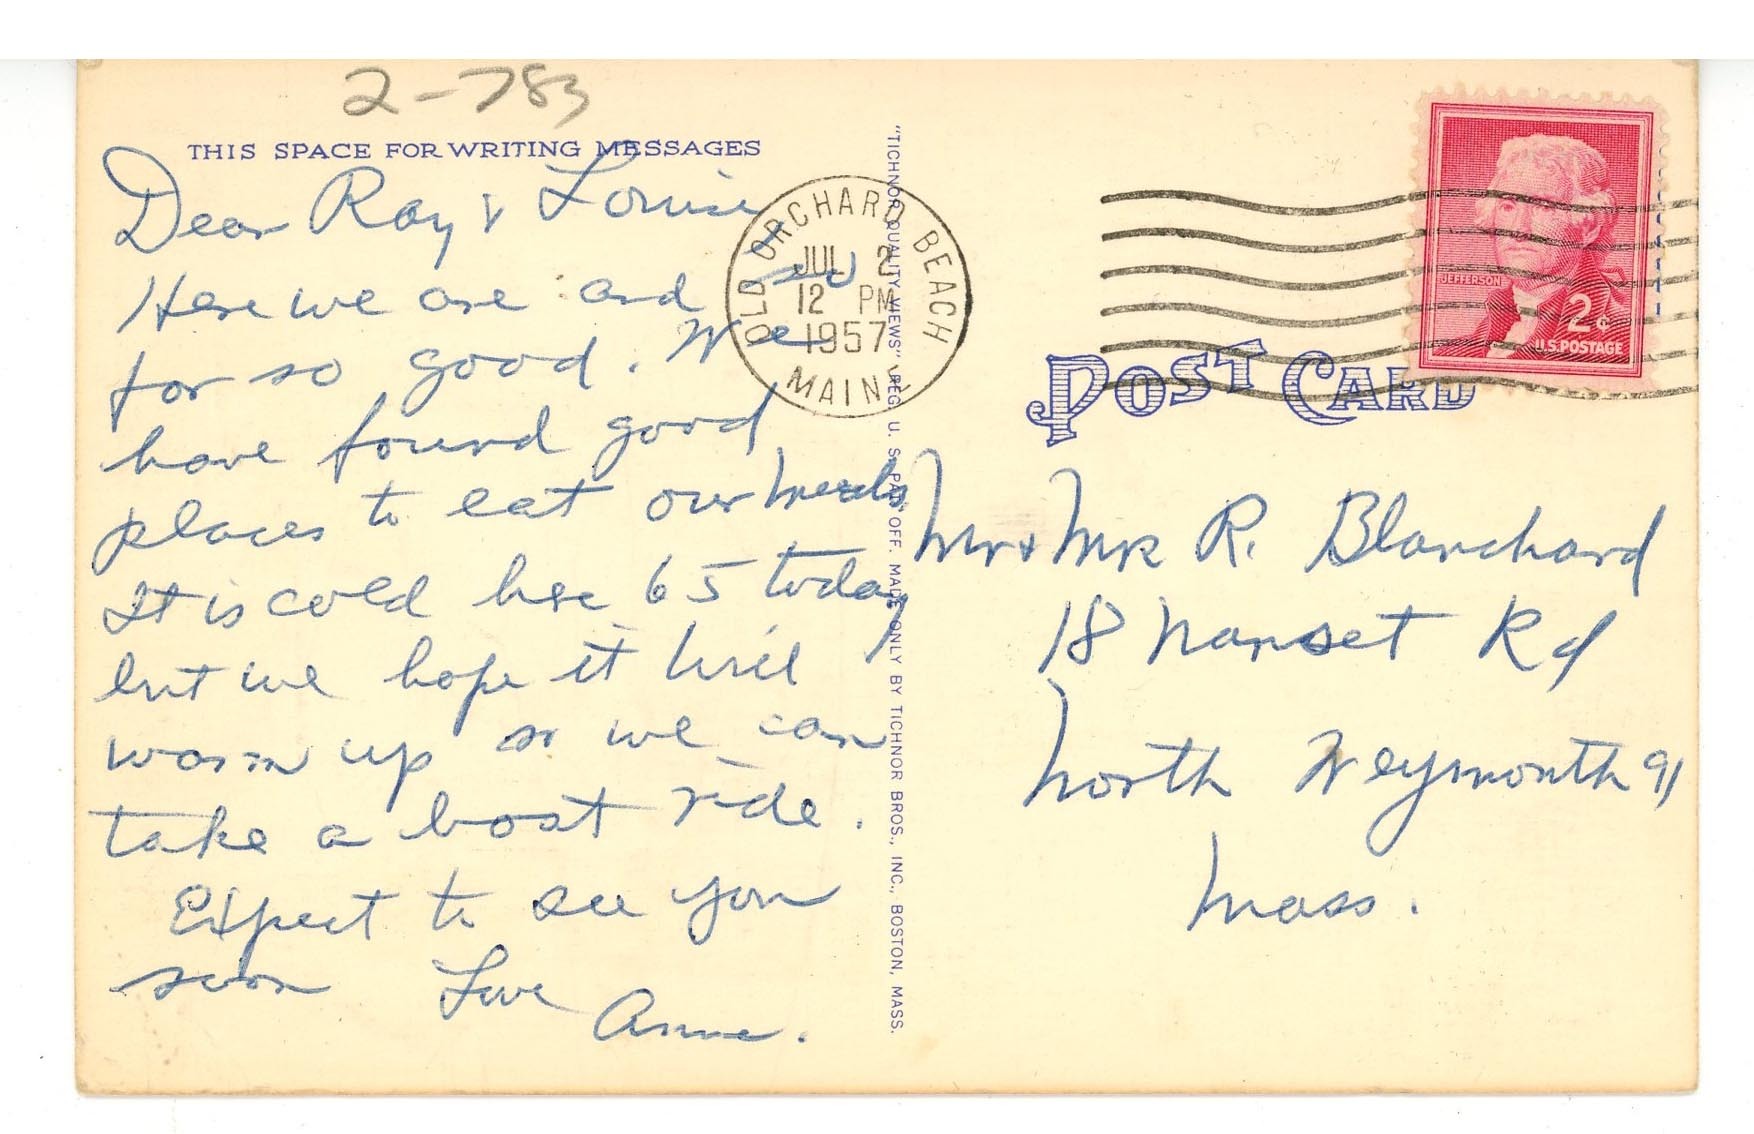 2-783
THIS SPACE FOR WRITING MESSAGES
Dear Ray & Louise
Here we are and so
for so good. We
have found good
places to eat our meals
It is cold here 65 today
but we hope it will
warm up so we can
take a boat ride.
Expect to see you
soon Love
Anne.
OLD ORCHARD BEACH
JUL 2
12 PM
1957
MAINE
"TICHNOR QUALITY VIEWS" REG. U. S. PAT. OFF. MADE ONLY BY TICHNOR BROS., INC., BOSTON, MASS.
JEFFERSON
2¢
U.S. POSTAGE
POST CARD
Mr & Mrs R. Blanchard
18 Nanset Rd
North Weymouth 91
Mass.